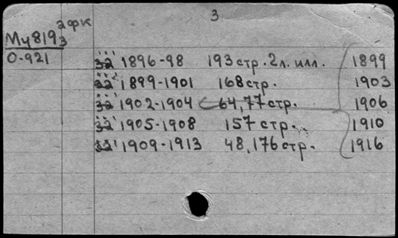 3
2 фк
Му 819 3
О-921
32 1896-98 193 стр. 2 л. илл. 1899
32 1899-1901 168 стр. 1903
32 1902-1904 64,77 стр. 1906
32 1905-1908 157 стр. 1910
32 1909-1913 48,176 стр. 1916